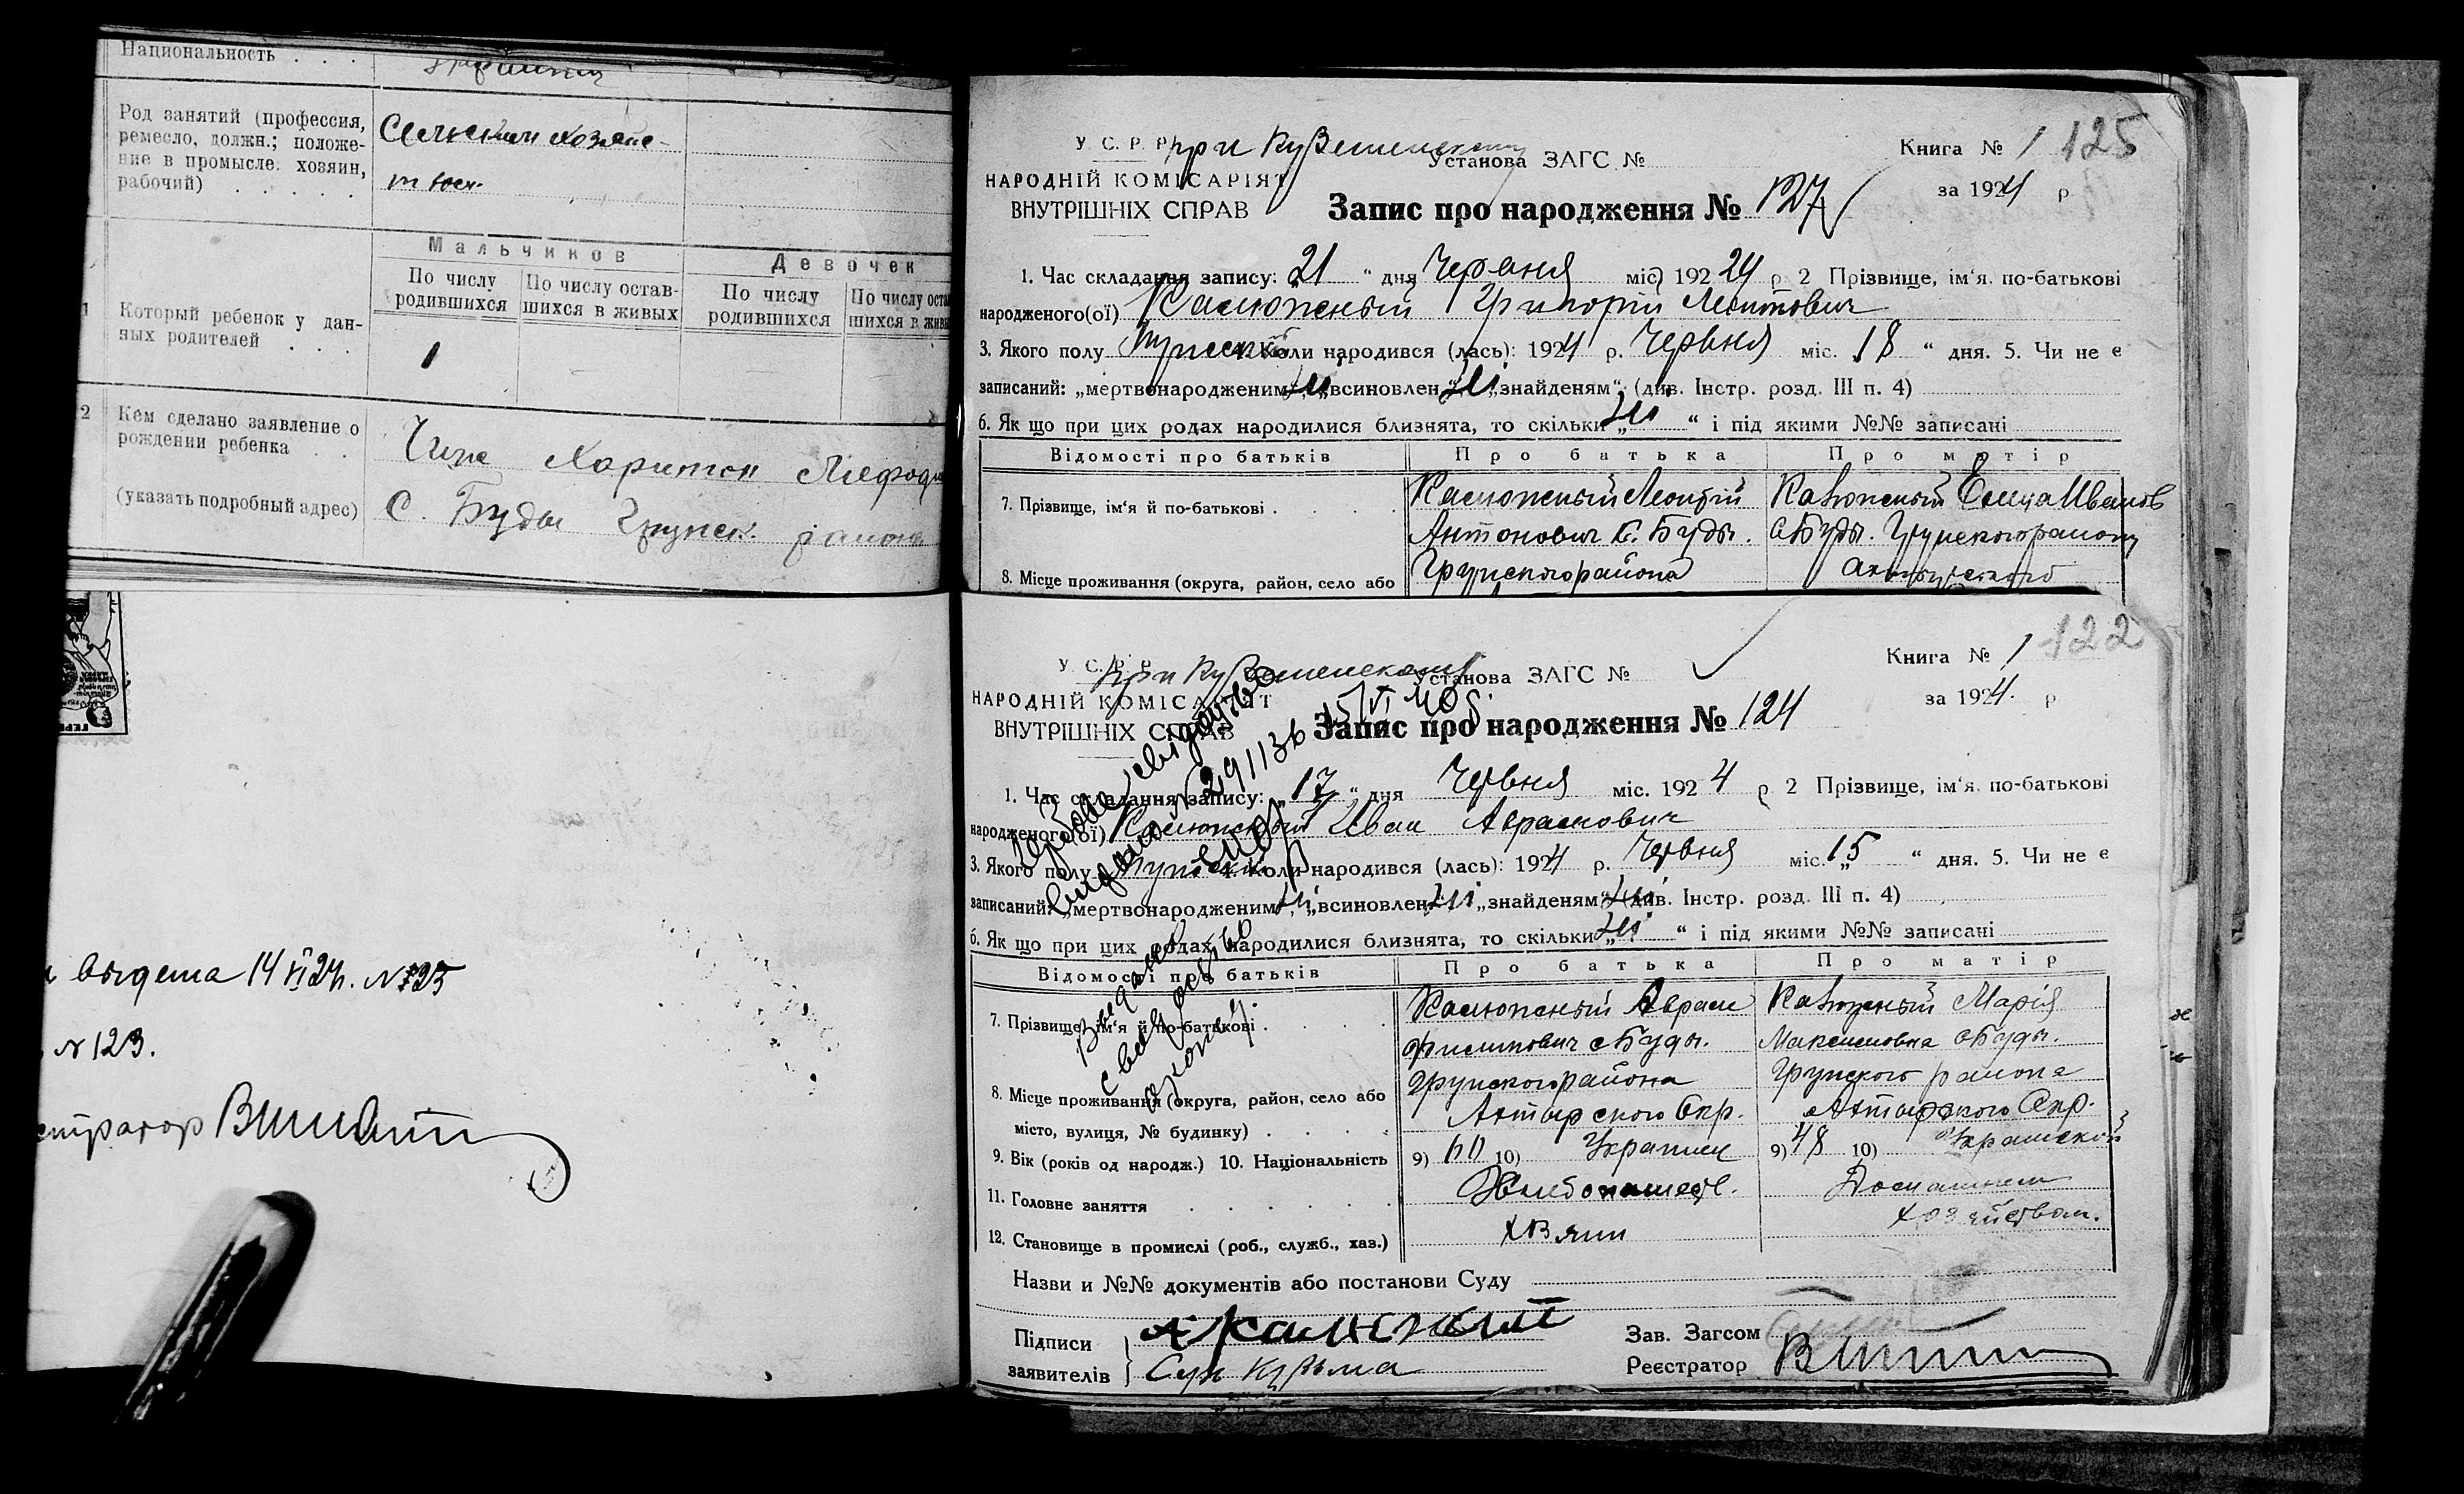 Национальность . . .
Род занятий (профессия,
ремесло, должн.; положе-
ние в промысле: хозяин,
рабочий) . . . . .
Сельским хозяйс-
твом.
Мальчиков
Девочек
По числу
родившихся
По числу остав-
шихся в живых
По числу
родившихся
По числу оста
шихся в живы
Который ребенок у дан-
ных родителей . . .
1
2 Кем сделано заявление о
рождении ребенка . .
(указать подробный адрес)
Харитон Мефоди
С. Буды Грунск. района
выдета 14 VI 24. N 125
N 123.
У. С. Р. Р.
при
Установа ЗАГС №
Книга № 1
125
НАРОДНІЙ КОМІСАРІЯТ
ВНУТРІШНІХ СПРАВ
за 1924 р
Запис про народження № 127
1. Час складання запису: „21 “ дня Червня міс 192 24 р 2 Прізвище, ім‘я. по-батькові
народженого(ої) Калюжный Григорій Леонтович
3. Якого полу Мужеск. 4. Коли народився (лась): 1924 р. Червня міс. 18 “ дня. 5. Чи не є
записаний: „мертвонародженим“, ні „всиновлен.“ ні „знайденям“ (див. Інстр. розд. III п. 4)
6. Як що при цих родах народилися близнята, то скільки „ ні “ і під якими №№ записані
Відомості про батьків
Про батька
Про матір
7. Прізвище, ім‘я й по-батькові . . . .
Калюжный Леонтій
Антонович С. Буды.
Калюжный Иванов
с Буды. Грунского району
8. Місце проживання (округа, район, село або
Грунского района
У. С. Р. Р.
при
Установа ЗАГС №
Книга № 1
122
НАРОДНІЙ КОМІСАРІЯТ
ВНУТРІШНІХ СПРАВ
за 1924. р
Запис про народження № 124
291136 15/VI 40
1. Час складання запису: „17 “ дня Червня міс. 192 4 р 2 Прізвище, ім‘я. по-батькові
народженого(ої) Калюжный Иван Аврамович
3. Якого полу Мужеск. 4. Коли народився (лась): 1924 р. Червня міс. 15 “ дня. 5. Чи не є
записаний: „мертвонародженим“, ні „всиновлен.“ ні „знайденям“ ні (див. Інстр. розд. III п. 4)
6. Як що при цих родах народилися близнята, то скільки „ ні “ і під якими №№ записані
Відомості про батьків
Про батька
Про матір
7. Прізвище, ім‘я й по-батькові . . . .
Калюжный Аврам
Филипович с Буды.
Калюжный Марія
Максимовна с Буды.
8. Місце проживання (округа, район, село або
місто, вулиця, № будинку) . . . .
Грунского района
Ахтырского Окр.
Грунского района
Ахтырского Окр.
9. Вік (років од народж.) 10. Національність
9) 60 10) Украинец
9) 48 10) Украинской
11. Головне заняття . . . . . .
Хлебопашест.
Домашнем
хозяйством.
12. Становище в промислі (роб., служб., хаз.)
Назви и №№ документів або постанови Суду
Підписи
заявителів
А Калюжний
Сук Кузьма
Зав. Загсом
Реєстратор